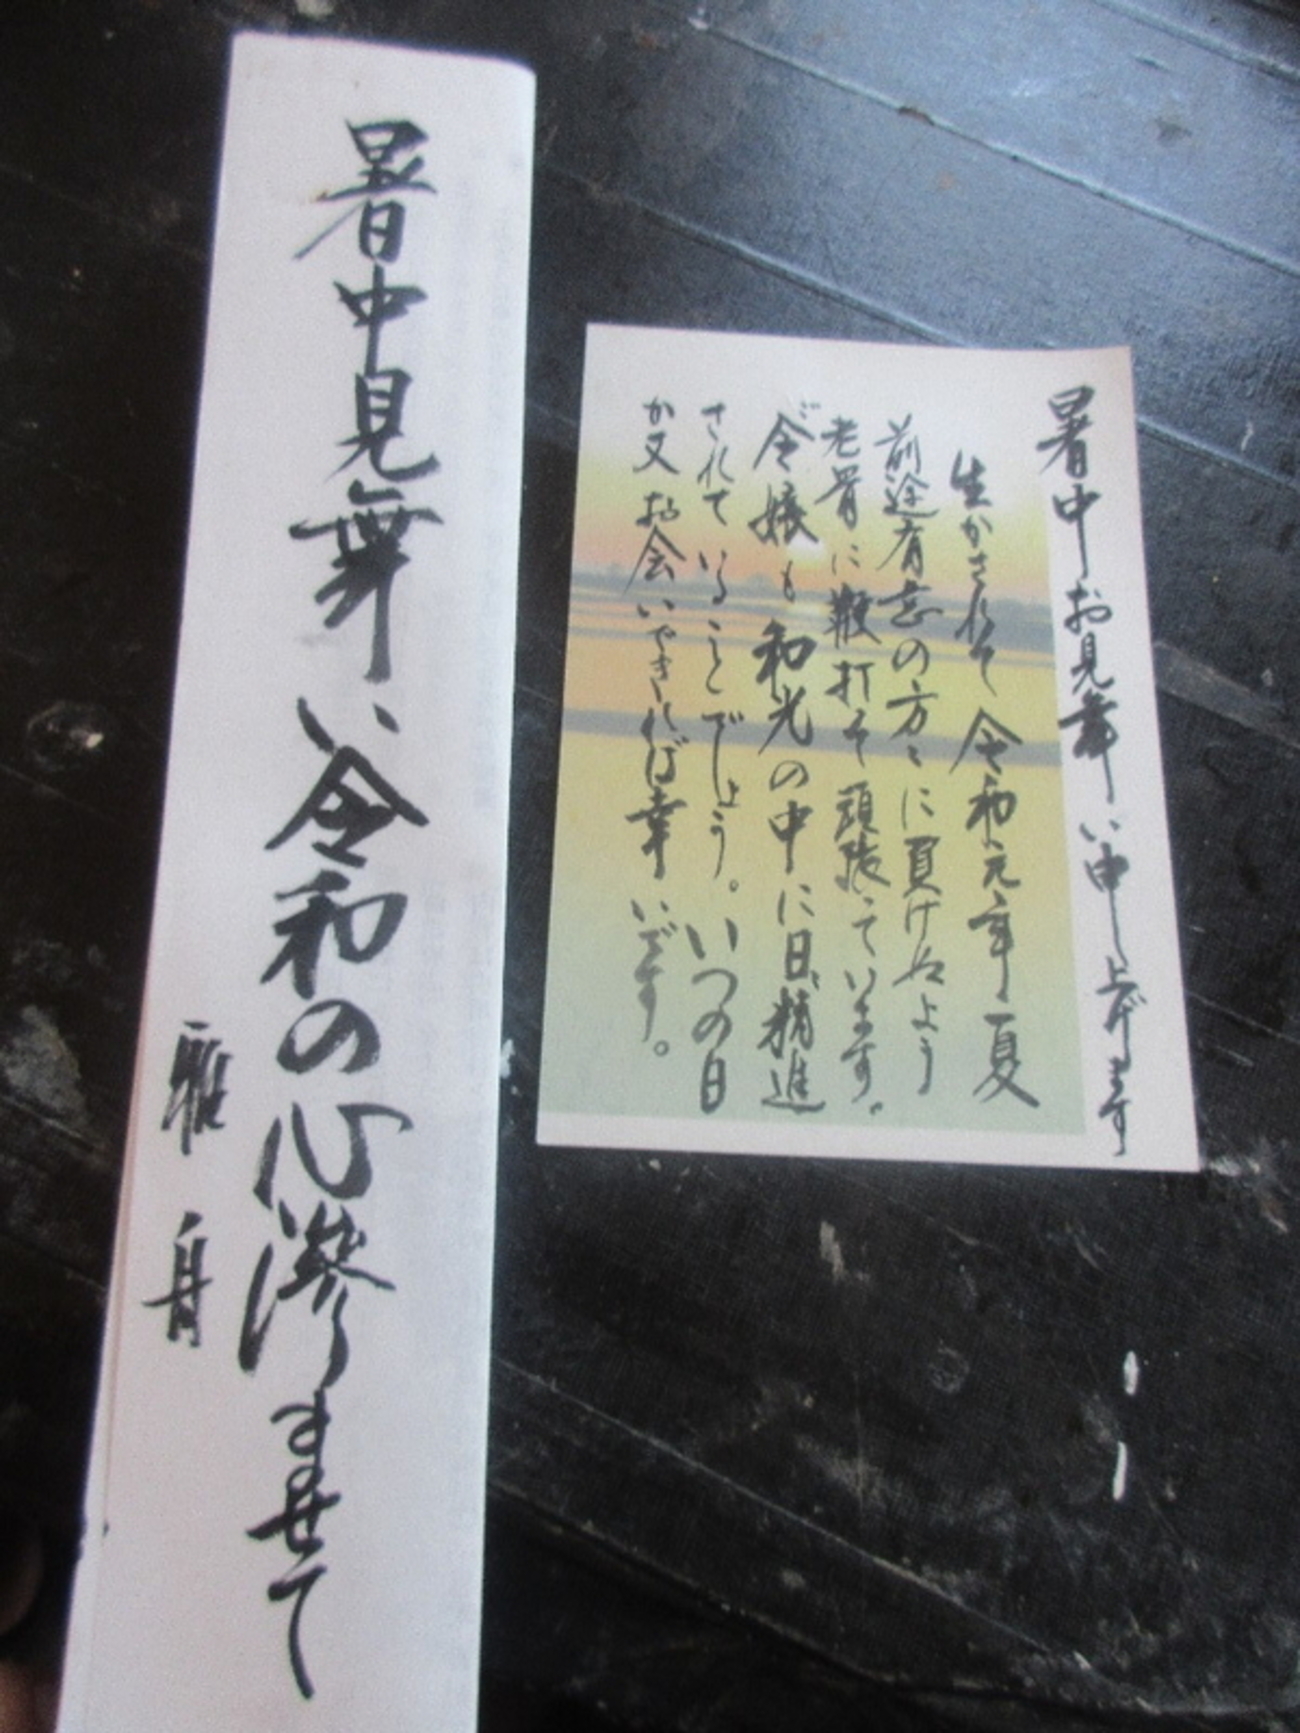 暑中お見舞い申し上げます
生かされて令和元年夏
前途有志の方々に負けぬよう
老骨に鞭打って頑張っています。
ご令嬢も和光の中に日々精進
されていることでしょう。いつの日
か又お会いできれば幸いです。
暑中見舞い令和の心滲ませて
雅舟